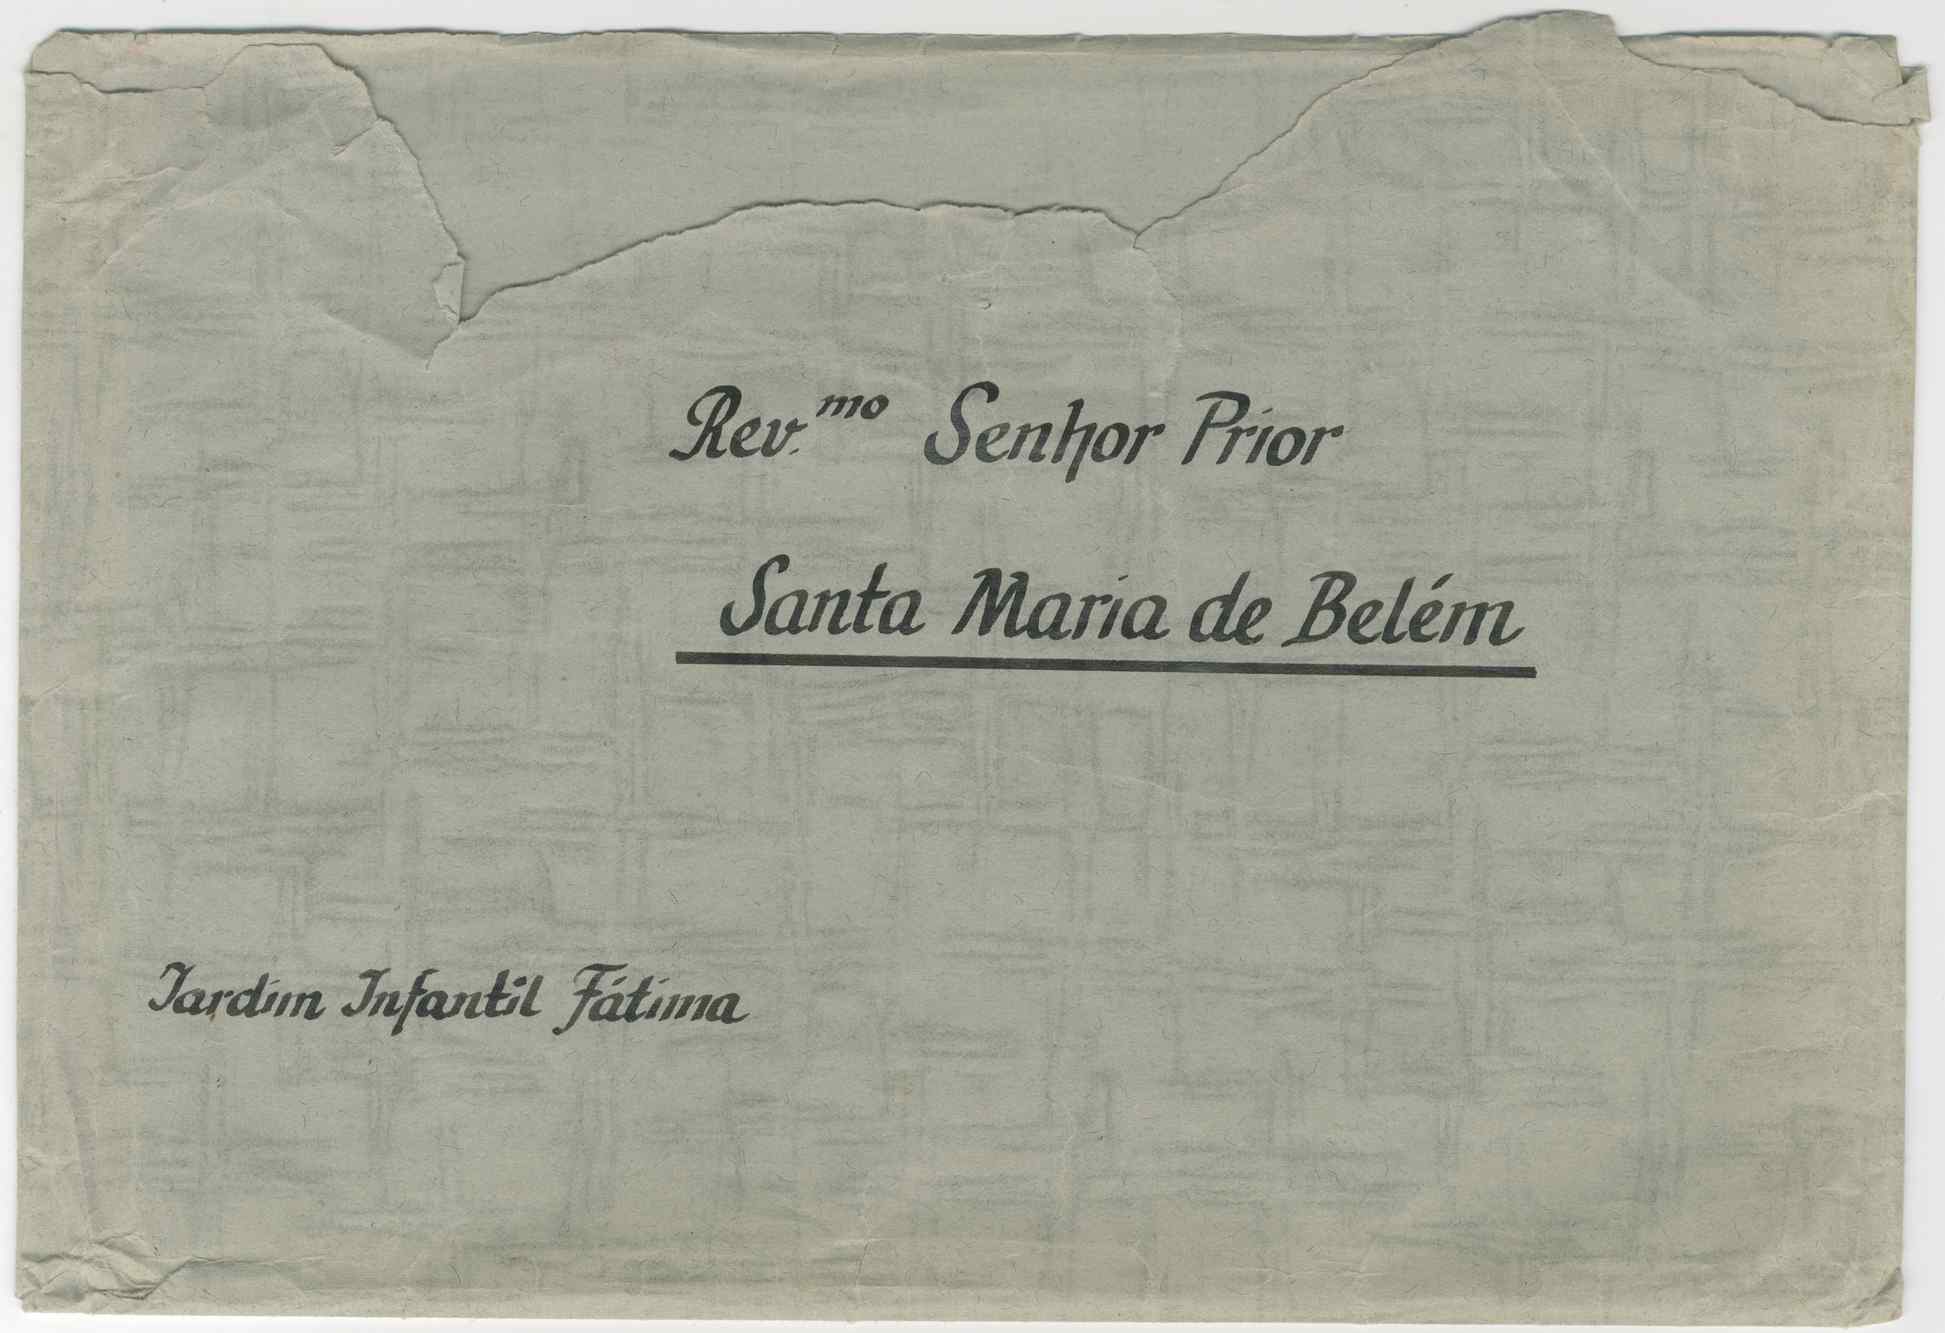 Rev.mo Senhor Prior
Santa Maria de Belém
Jardim Infantil Fátima